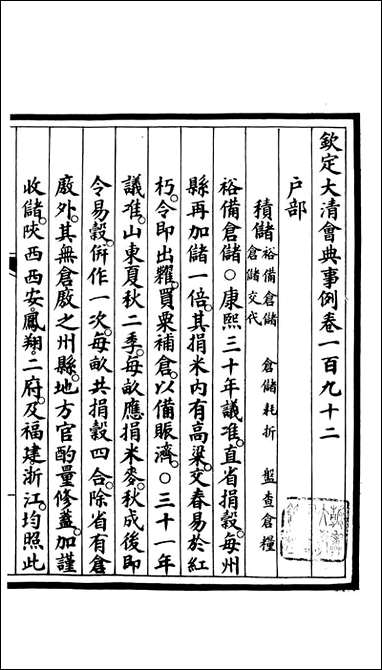 欽定大清會典事例卷一百九十二
户部
積儲裕備倉儲 倉儲耗折 盤查倉糧
倉儲交代
裕備倉儲○康熙三十年議准直省捐穀每州
縣再加儲一倍其捐米内有高粱交春易於紅
朽令即出糶買粟補倉以備賑濟○三十一年
議准山東夏秋二季每畝應捐米麥秋成後即
令易穀併作一次每畝共捐穀四合除省有倉
廒外其無倉廒之州縣地方官酌量修葢加謹
收儲陝西西安鳳翔二府及福建浙江均照此